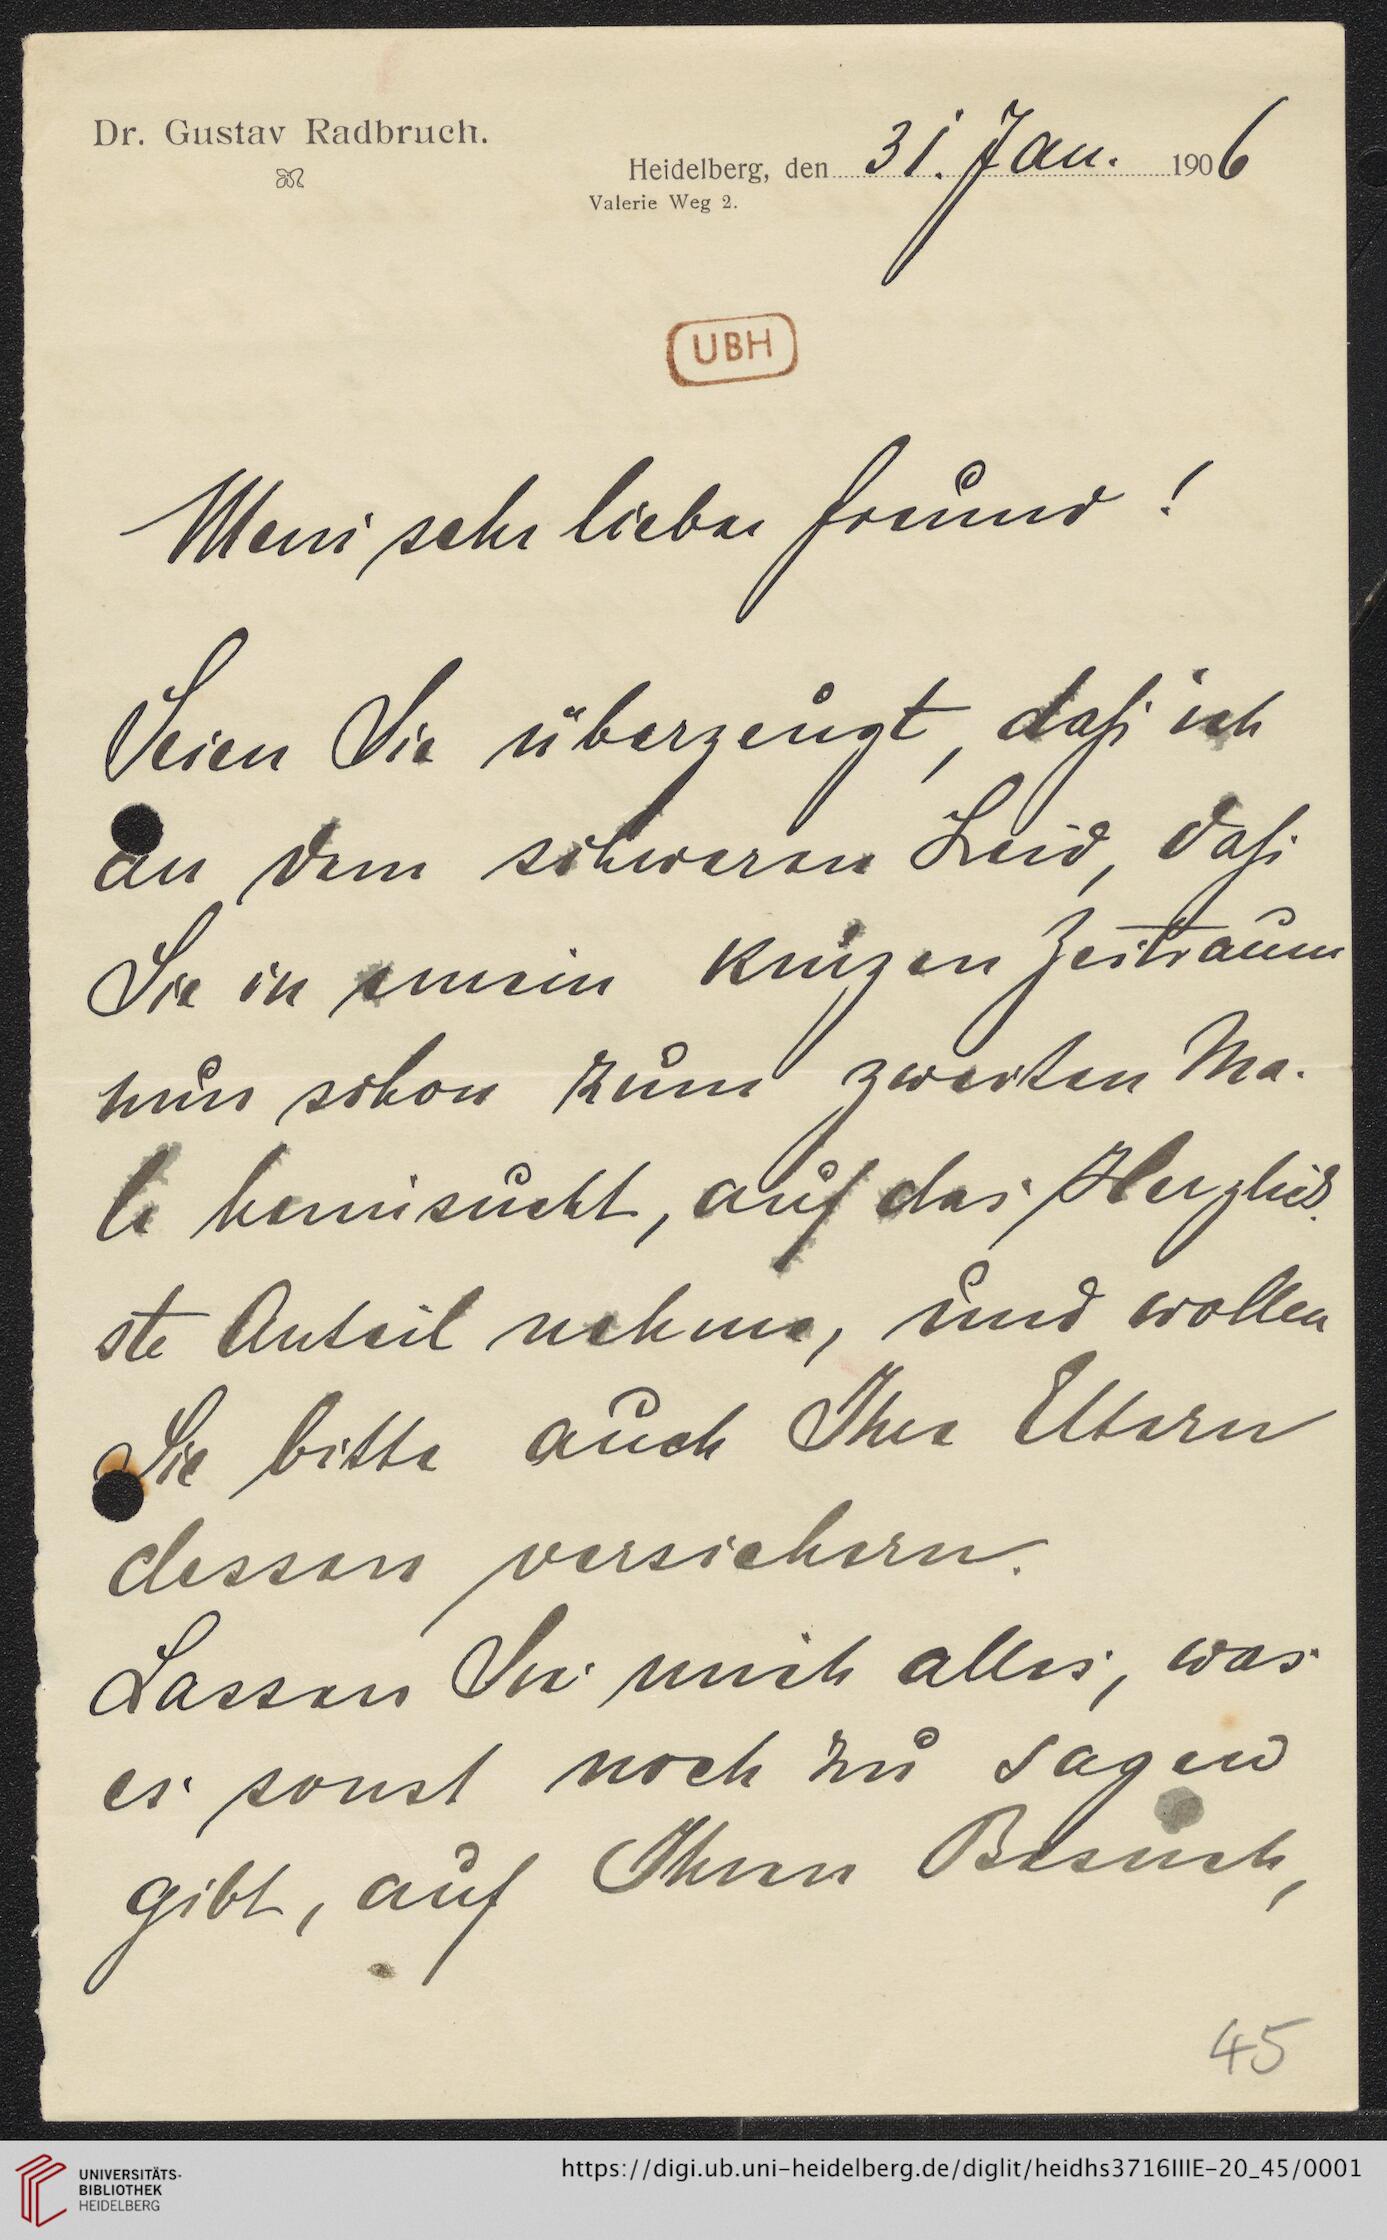 Dr. Gustav Radbruch.
Heidelberg, den 31. Jan. 1906
Valerie Weg 2.
UBH
Mein sehr lieber Freund!
Seien Sie überzeugt, daß ich
an dem schweren Leid, daß
Sie in einem kurzen Zeitraum
nun schon zum zweiten Ma-
le heimsucht, auf das Herzlich-
ste Anteil nehme, und wollen
Sie bitte auch Ihre Eltern
dessen versichern.
Lassen Sie mich alles, was
es sonst noch zu sagen
gibt, auf Ihren Besuch,
45
UNIVERSITÄTS-
BIBLIOTHEK
HEIDELBERG
https://digi.ub.uni-heidelberg.de/diglit/heidhs3716IIIE-20_45/0001